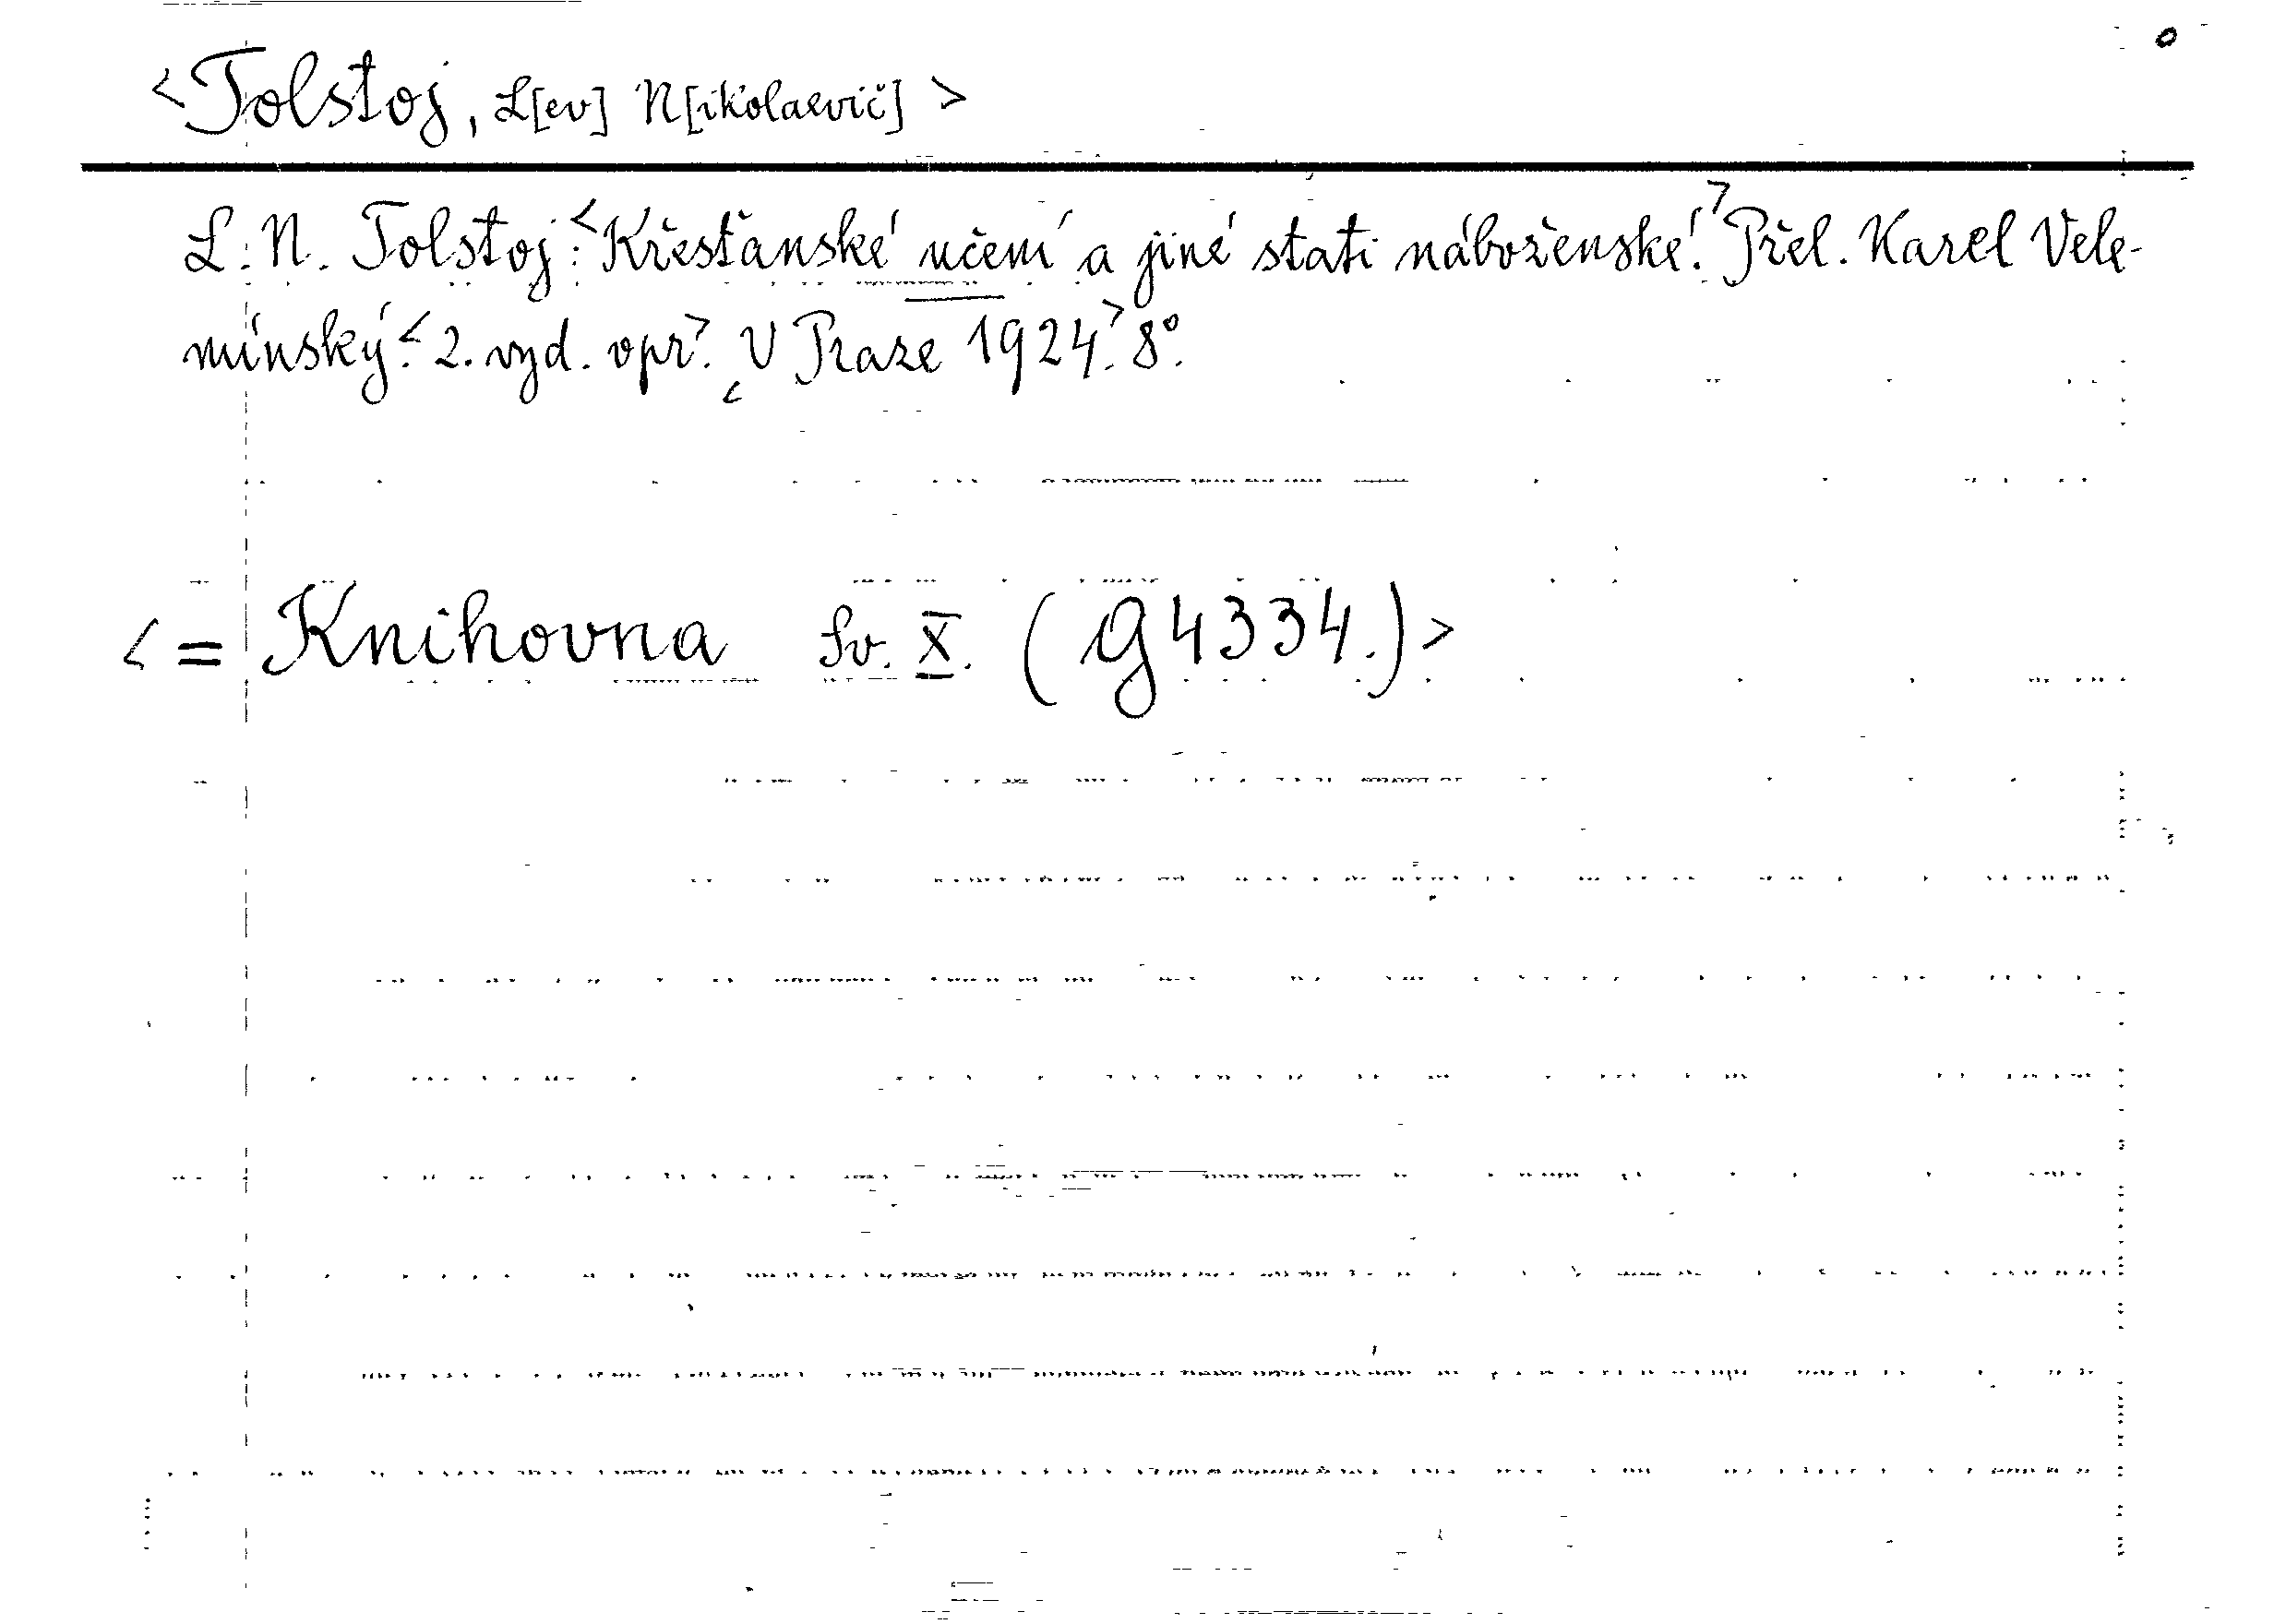 <Tolstoj, L[ev] N[ikolaevič]>
L. N. Tolstoj: <Křesťanské učení a jiné stati náboženské.> Přel. Karel Vele-
mínský. <2. vyd. opr.> <V Praze 1924.> 8°.
<= Knihovna Sv. X. (G 4334.)>